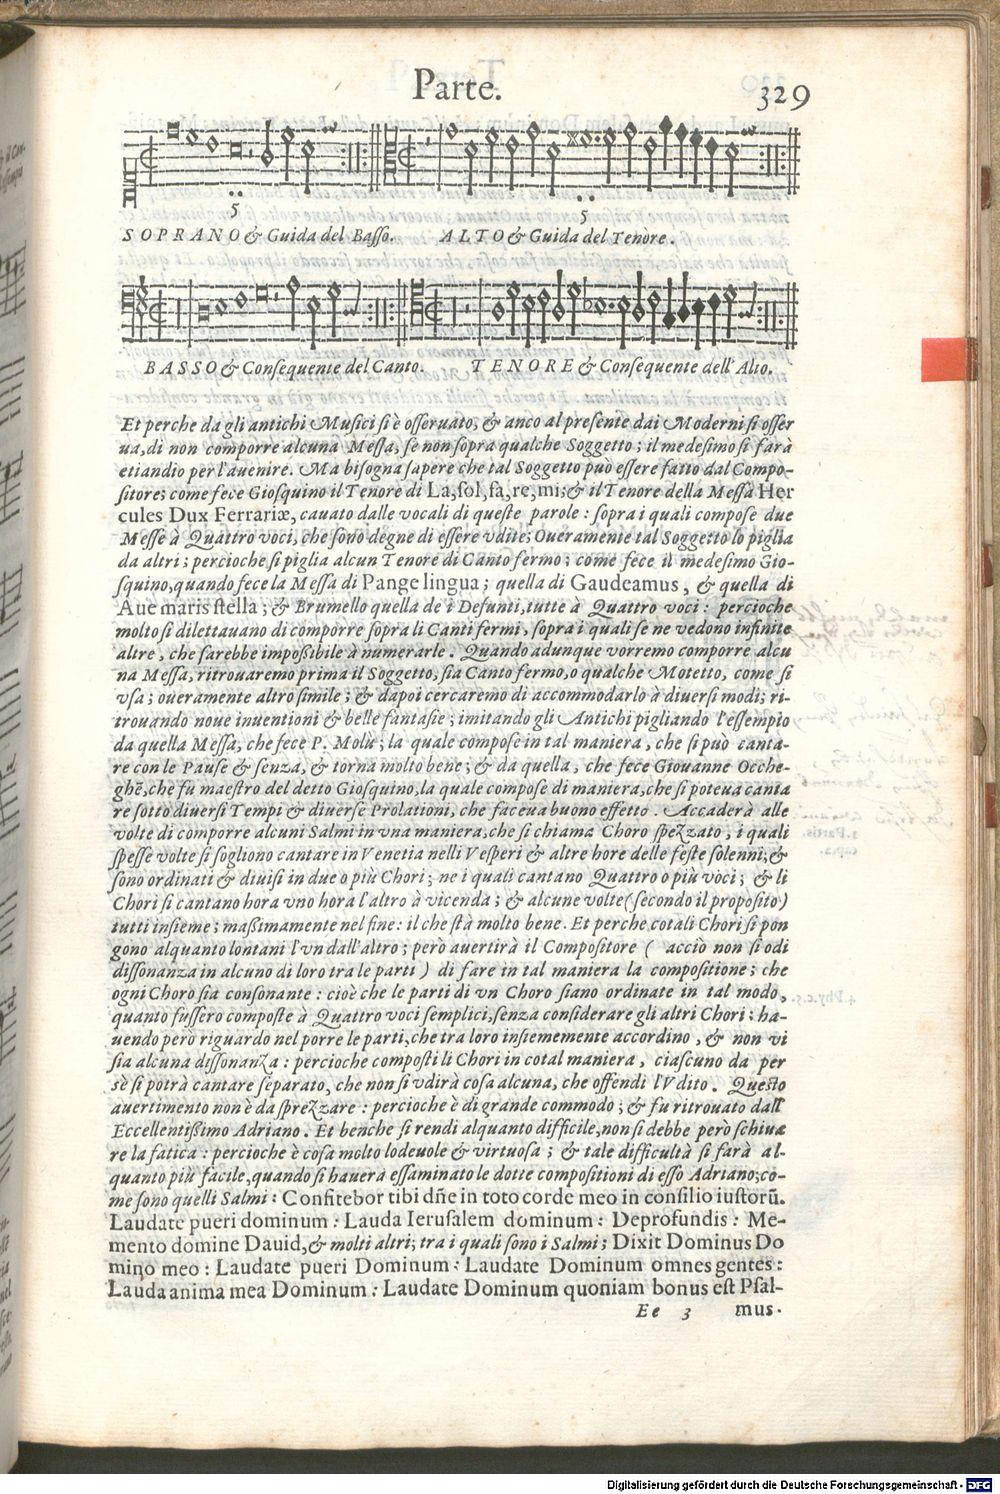 Parte. 329
5 5
SOPRANO & Guida del Basso. ALTO & Guida del Tenore.
BASSO & Consequente del Canto. TENORE & Consequente dell'Alto.
Et perche da gli antichi Musici si è osseruato, & anco al presente dai Moderni si osser
ua, di non comporre alcuna Messa, se non sopra qualche Soggetto; il medesimo si farà
etiandio per l'auenire. Ma bisogna sapere che tal Soggetto può essere fatto dal Compo-
sitore; come fece Giosquino il Tenore di La, sol, fa, re, mi; & il Tenore della Messa Her
cules Dux Ferrariæ, cauato dalle vocali di queste parole: sopra i quali compose due
Messe à Quattro voci, che sono degne di essere vdite; Oueramente tal Soggetto lo piglia
da altri; percioche si piglia alcun Tenore di Canto fermo; come fece il medesimo Gio-
squino, quando fece la Messa di Pange lingua; quella di Gaudeamus, & quella di
Aue maris stella; & Brumello quella de i Defunti, tutte à Quattro voci: percioche
molto si dilettauano di comporre sopra li Canti fermi, sopra i quali se ne vedono infinite
altre, che sarebbe impoßibile à numerarle. Quando adunque vorremo comporre alcu
na Messa, ritrouaremo prima il Soggetto, sia Canto fermo, o qualche Motetto, come si
vsa; oueramente altro simile; & dapoi cercaremo di accommodarlo à diuersi modi; ri-
trouando noue inuentioni & belle fantasie; imitando gli Antichi pigliando l'essempio
da quella Messa, che fece P. Molù; la quale compose in tal maniera, che si può canta-
re con le Pause & senza, & torna molto bene; & da quella, che fece Giouanne Ocche-
ghē, che fu maestro del detto Giosquino, la quale compose di maniera, che si poteua canta
re sotto diuersi Tempi & diuerse Prolationi, che faceua buono effetto. Accaderà alle
volte di comporre alcuni Salmi in vna maniera, che si chiama Choro spezzato, i quali
spesse volte si sogliono cantare in Venetia nelli Vesperi & altre hore delle feste solenni; &
sono ordinati & diuisi in due o più Chori; ne i quali cantano Quattro o più voci; & li
Chori si cantano hora vno hora l'altro à vicenda; & alcune volte (secondo il proposito)
tutti insieme; maßimamente nel fine: il che stà molto bene. Et perche cotali Chori si pon
gono alquanto lontani l'vn dall'altro; però auertirà il Compositore ( acciò non si odi
dissonanza in alcuno di loro tra le parti ) di fare in tal maniera la compositione; che
ogni Choro sia consonante: cioè che le parti di vn Choro siano ordinate in tal modo,
quanto fussero composte à Quattro voci semplici, senza considerare gli altri Chori: ha-
uendo però riguardo nel porre le parti, che tra loro insiememente accordino, & non vi
sia alcuna dissonanza: percioche composti li Chori in cotal maniera, ciascuno da per
sè si potrà cantare separato, che non si vdirà cosa alcuna, che offendi l'Vdito. Questo
auertimento non è da sprezzare: percioche è di grande commodo; & fu ritrouato dall'
Eccellentißimo Adriano. Et benche si rendi alquanto difficile, non si debbe però schiua
re la fatica: percioche è cosa molto lodeuole & virtuosa; & tale difficultà si farà al-
quanto più facile, quando si hauerà essaminato le dotte compositioni di esso Adriano; co-
me sono quelli Salmi: Confitebor tibi dñe in toto corde meo in consilio iustorū.
Laudate pueri dominum: Lauda Ierusalem dominum: Deprofundis: Me-
mento domine Dauid, & molti altri; tra i quali sono i Salmi; Dixit Dominus Do
mino meo: Laudate pueri Dominum: Laudate Dominum omnes gentes:
Lauda anima mea Dominum: Laudate Dominum quoniam bonus est Psal-
Ee 3 mus.
Digitalisierung gefördert durch die Deutsche Forschungsgemeinschaft - DFG